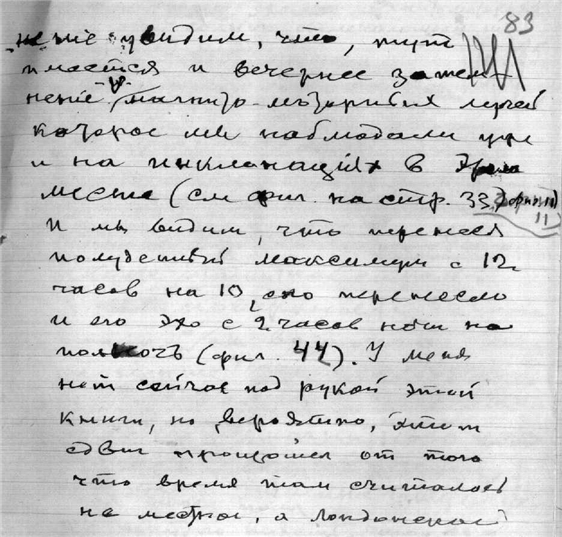 83
ненiе увидим, что, тут
имеется и вечернее затем-
ненiе магнито-мѣзорныих лучей
которое мы наблюдали уже
и на инклинацiях в этом
месте (см фиг. на стр. 33)
11
И мы видим, что перенеся
полуденный максимум с 12
часов на 10, оно перенесло
и его эхо с 2 часов ночи на
полночь (фиг. 44). У меня
нет сейчас под рукой этой
книги, но вероятно, этот
сдвиг произошел от того
что время там считалось
не местное, а Лондонское